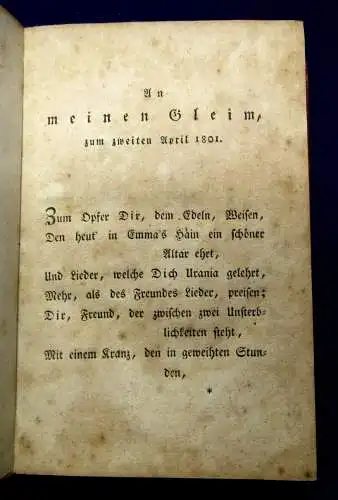 An
meinen Gleim,
zum zweiten April 1801.
Zum Opfer Dir, dem Edeln, Weisen,
Den heut' in Emma's Hain ein schöner
Altar ehrt,
Und Lieder, welche Dich Urania gelehrt,
Mehr, als des Freundes Lieder, preisen;
Dir, Freund, der zwischen zwei Unsterb-
lichkeiten steht,
Mit einem Kranz, den in geweihten Stun-
den,
*